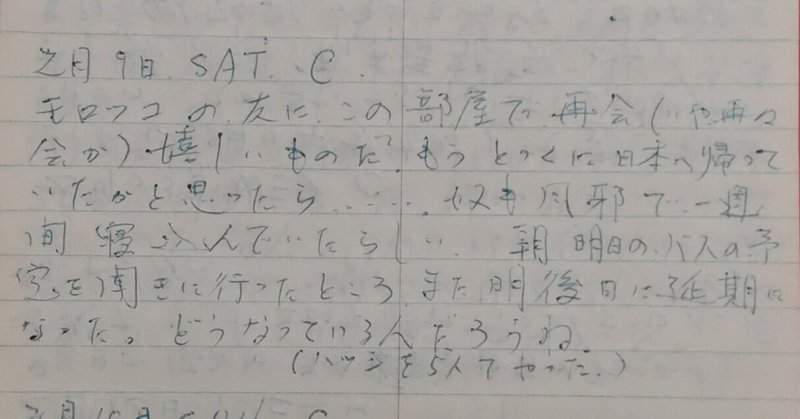 2月9日 SAT. C.
モロッコの友に、この部屋で再会(いや再々
会か)嬉しいものだ。もうとっくに日本へ帰って
いたかと思ったら……奴も風邪で一週
間寝込んでいたらしい。朝 明日のバスの予
定を聞きに行ったところ、また明後日に延期に
なった。どうなっているんだろうね。
(ハッシを5人でやった。)